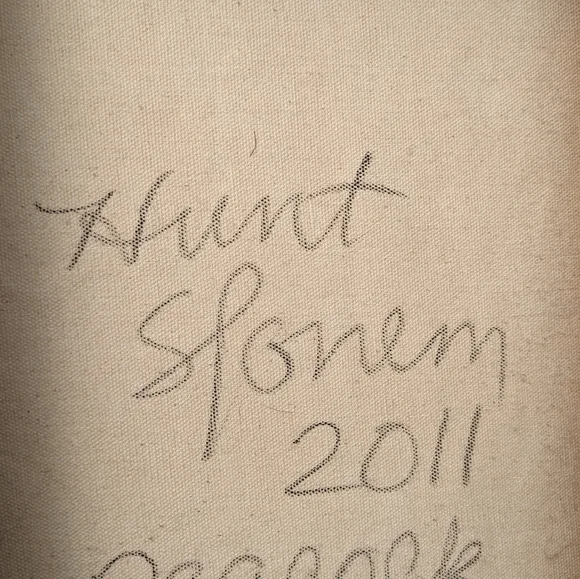 Hunt
Slonem
2011